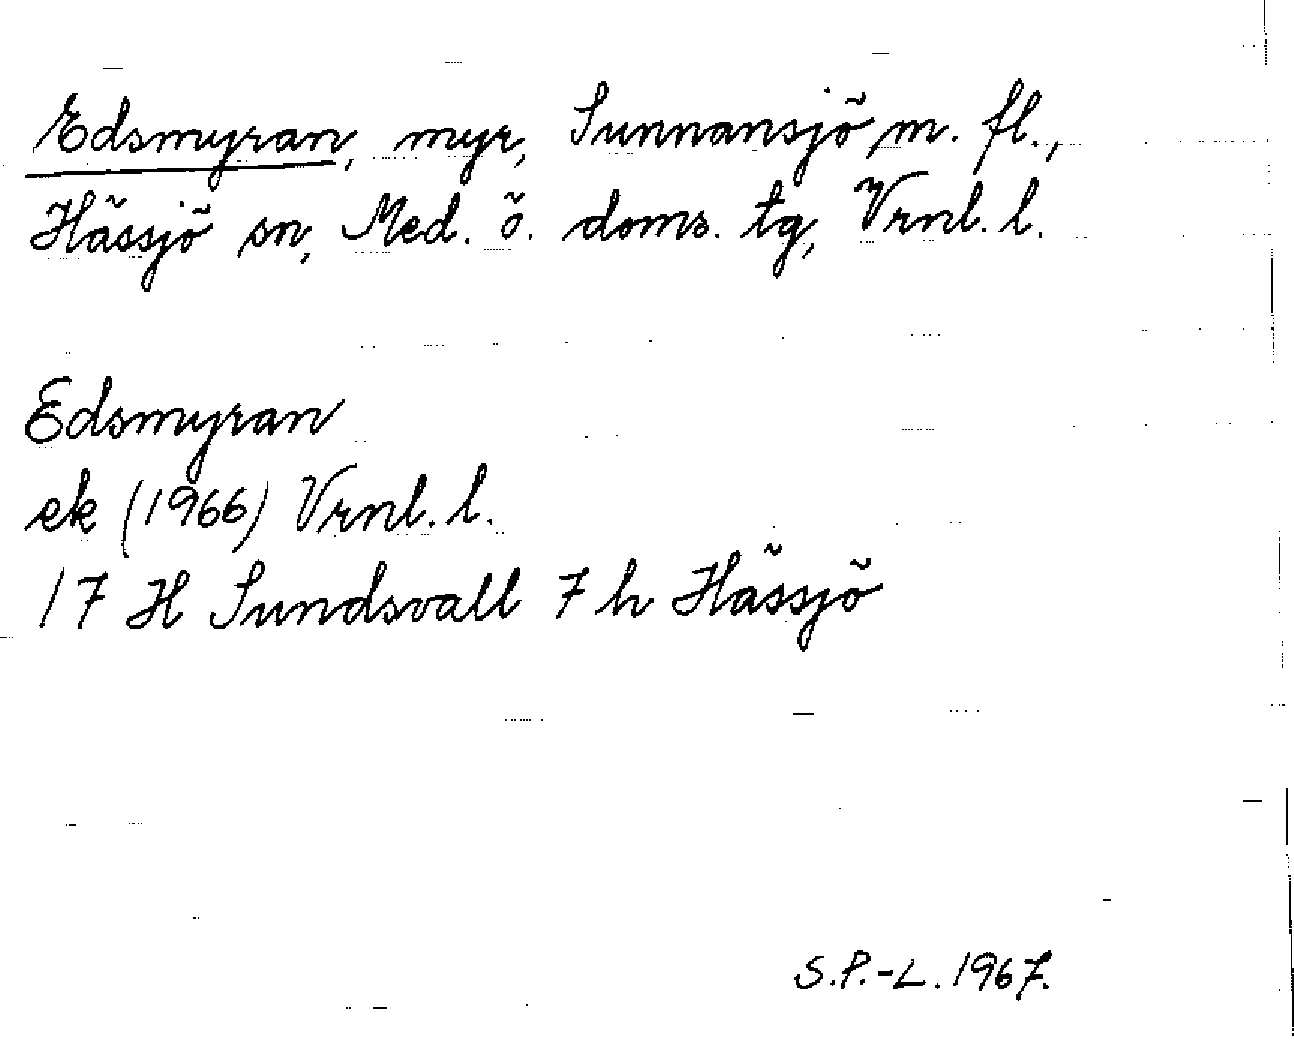 Edsmyran, myr, Sunnansjö m. fl.,
Hässjö sn, Med. ö. doms. tg, Vrnl. l.
Edsmyran
ek (1966) Vrnl. l.
17 H Sundsvall 7 h Hässjö
S.P.-L. 1967.